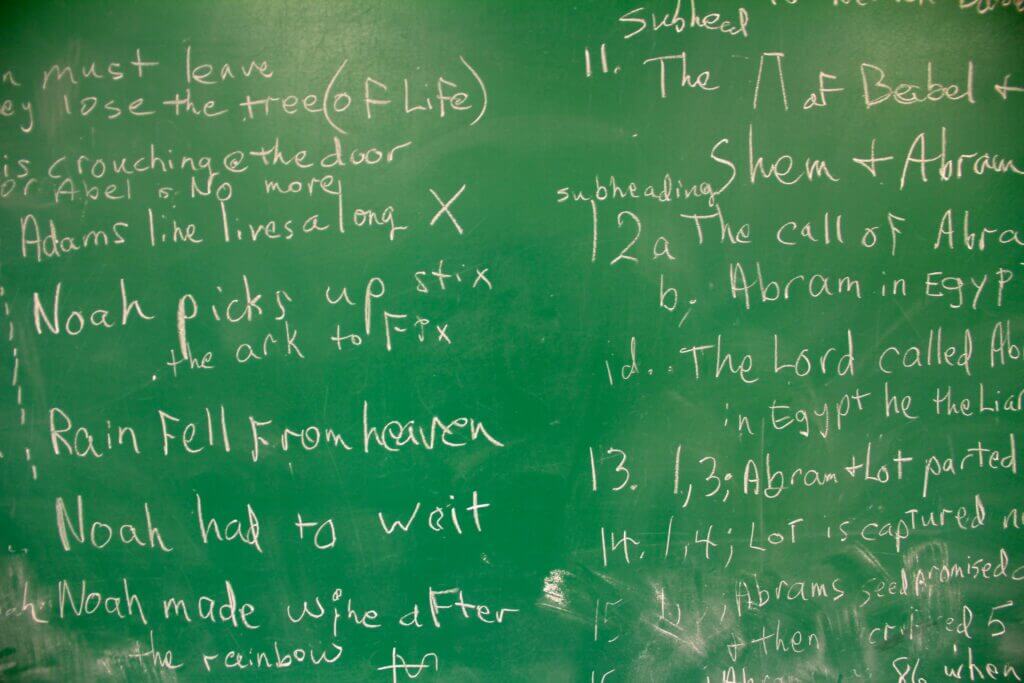 must leave
lose the tree (of Life)
is crouching @ the door
or Abel is No more
Adams line lives along X
Noah picks up stix
the ark to Fix
Rain Fell From heaven
Noah had to wait
Noah made wine after
the rainbow
Subhead
11. The of Babel +
Shem + Abram
subheading
12a The call of Abra
b. Abram in Egyp
d.. The Lord called Ab
in Egypt he the Liar
13. 1,3; Abram + Lot parted
14. 1,4; Lot is captured
15 Abrams seed promised
+ then 5
86 when